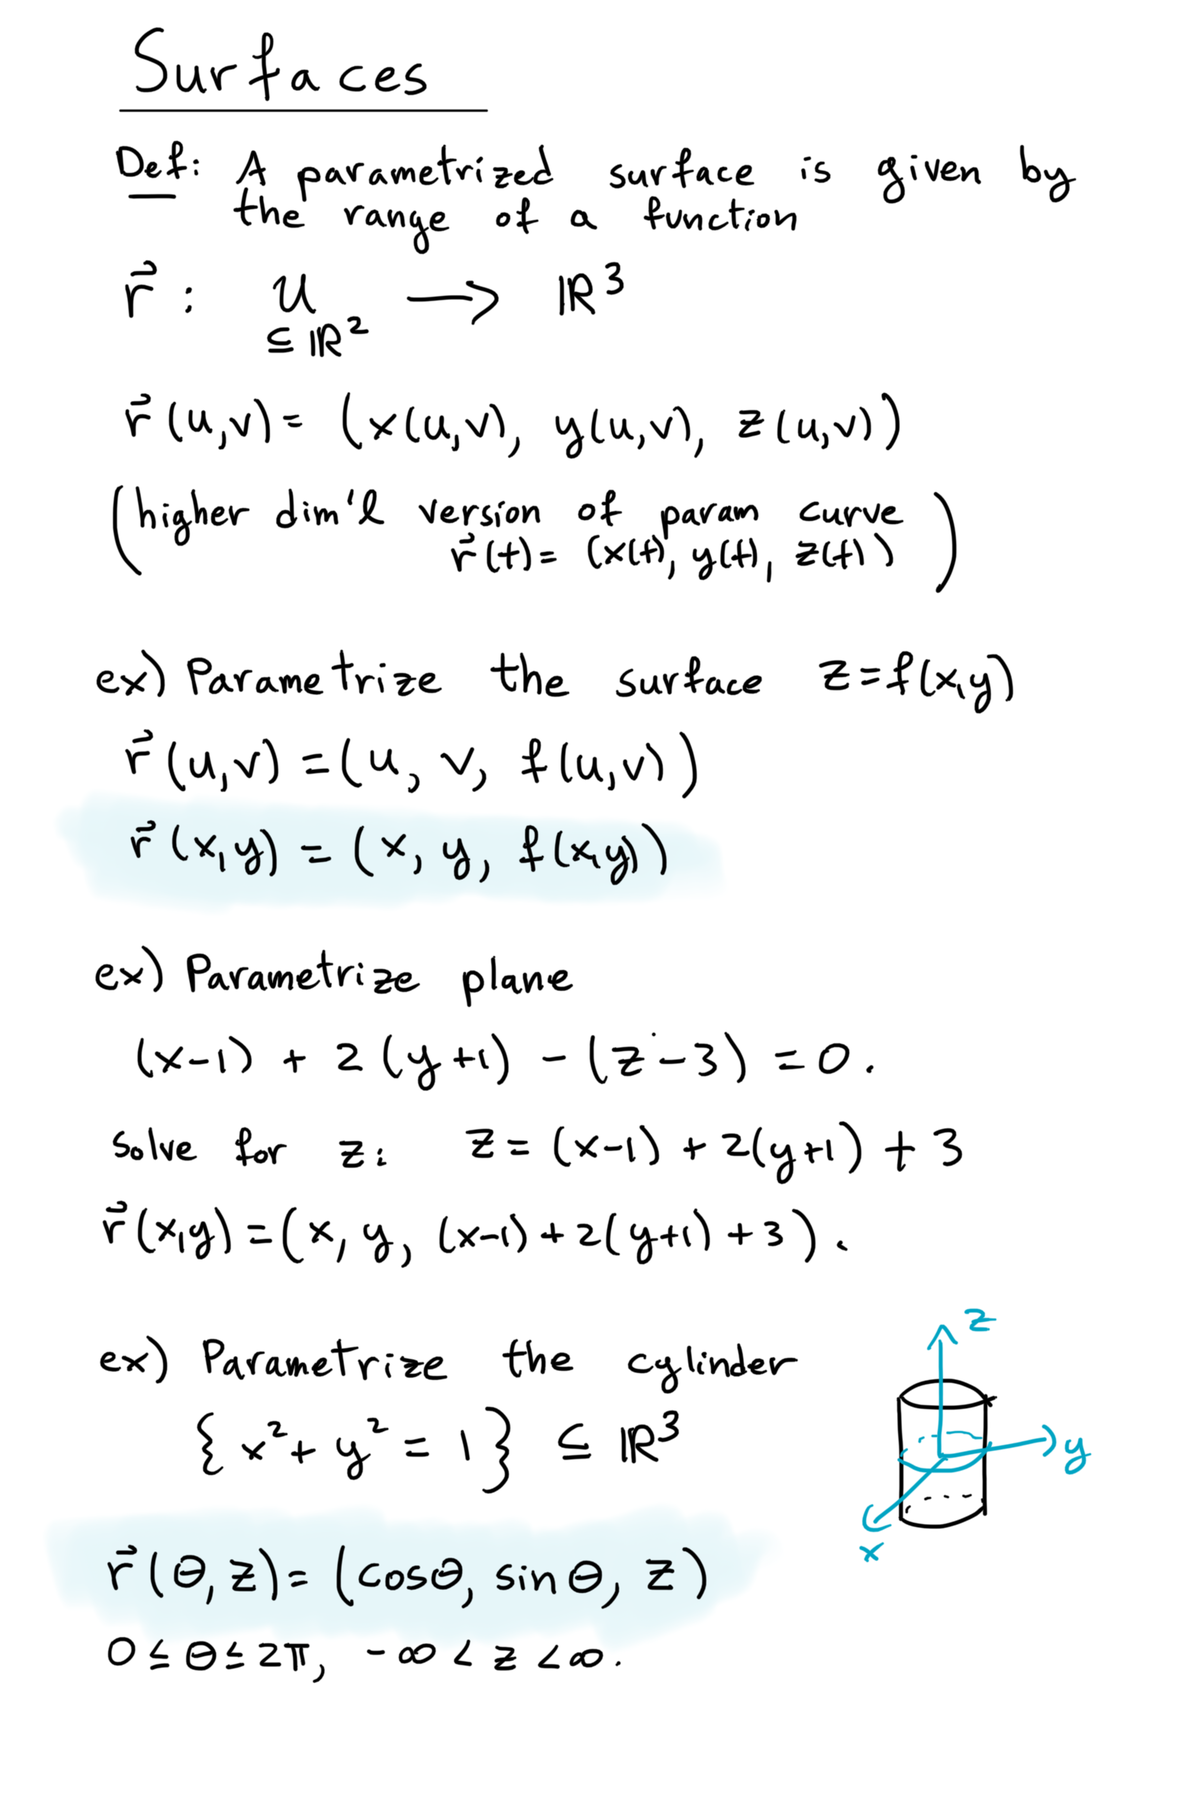 Surfaces
Def: A parametrized surface is given by
the range of a function
r⃗ : U ⟶ ℝ³
⊆ ℝ²
r⃗(u,v) = (x(u,v), y(u,v), z(u,v))
(higher dim'l version of param curve
r⃗(t) = (x(t), y(t), z(t)))
ex) Parametrize the surface z=f(x,y)
r⃗(u,v) = (u, v, f(u,v))
r⃗(x,y) = (x, y, f(x,y))
ex) Parametrize plane
(x-1) + 2(y+1) - (z-3) = 0.
Solve for z: z = (x-1) + 2(y+1) + 3
r⃗(x,y) = (x, y, (x-1) + 2(y+1) + 3).
ex) Parametrize the cylinder
{ x² + y² = 1 } ⊆ ℝ³
z
y
x
r⃗(θ, z) = (cosθ, sinθ, z)
0 ≤ θ ≤ 2π, -∞ < z < ∞.